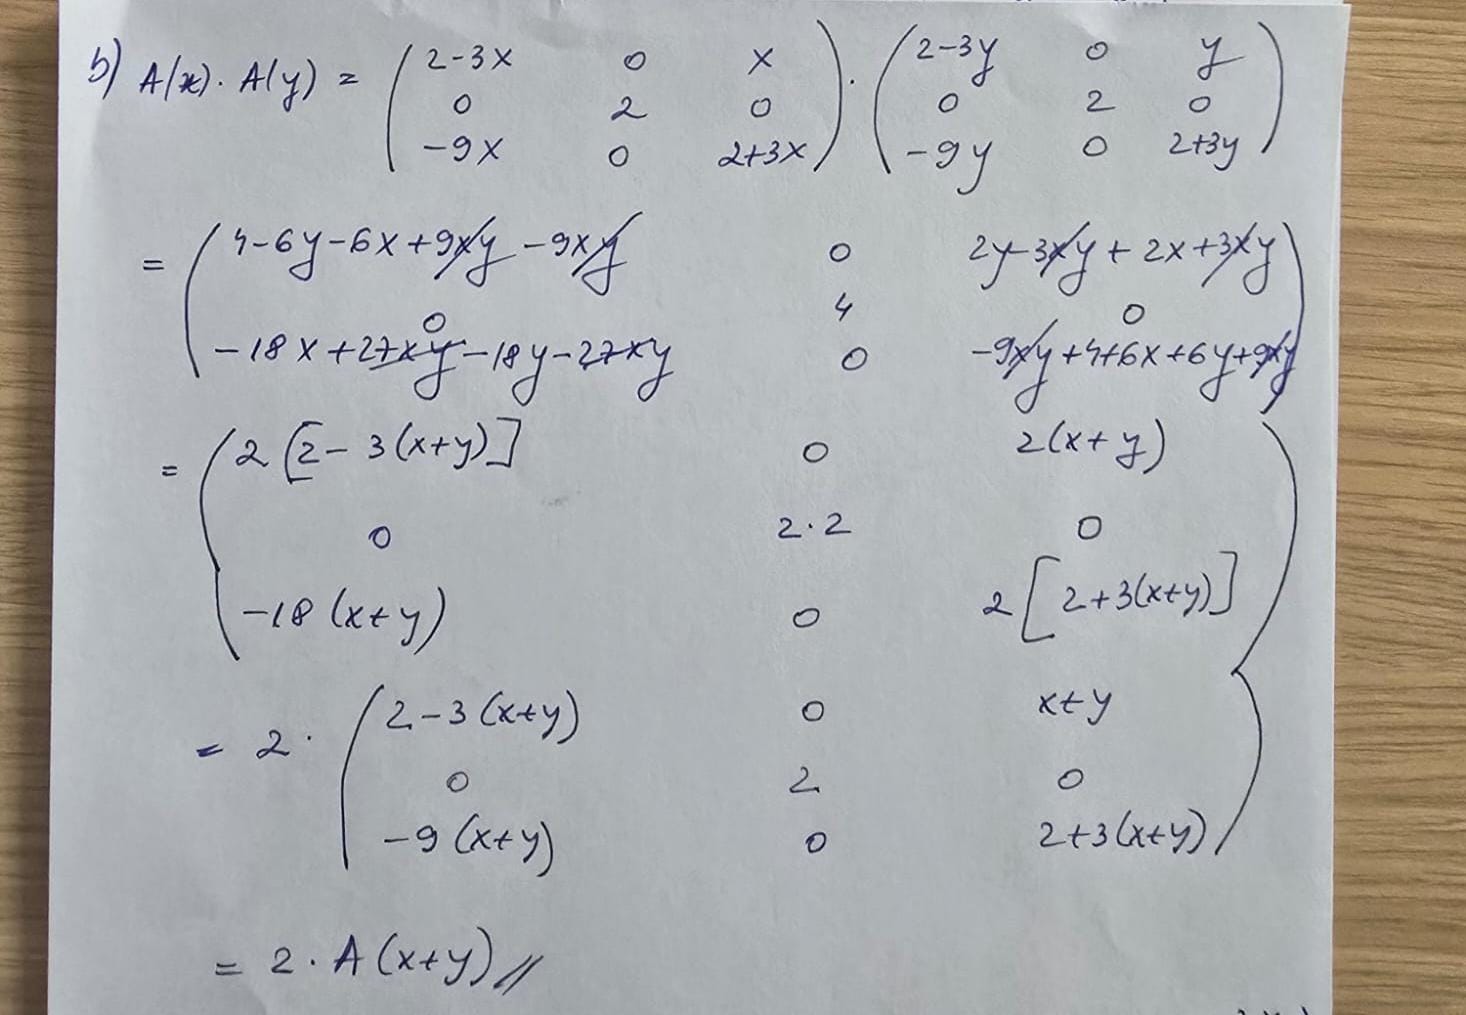 b) A(x) · A(y) = ( 2-3x 0 x ) · ( 2-3y 0 y )
0 2 0 0 2 0
-9x 0 2+3x -9y 0 2+3y
= ( 4-6y-6x+9xy-9xy 0 2y-3xy+2x+3xy )
0 4 0
-18x+27xy-18y-27xy 0 -9xy+4+6x+6y+9xy
= ( 2[2-3(x+y)] 0 2(x+y) )
0 2·2 0
-18(x+y) 0 2[2+3(x+y)]
= 2 · ( 2-3(x+y) 0 x+y )
0 2 0
-9(x+y) 0 2+3(x+y)
= 2 · A(x+y) //